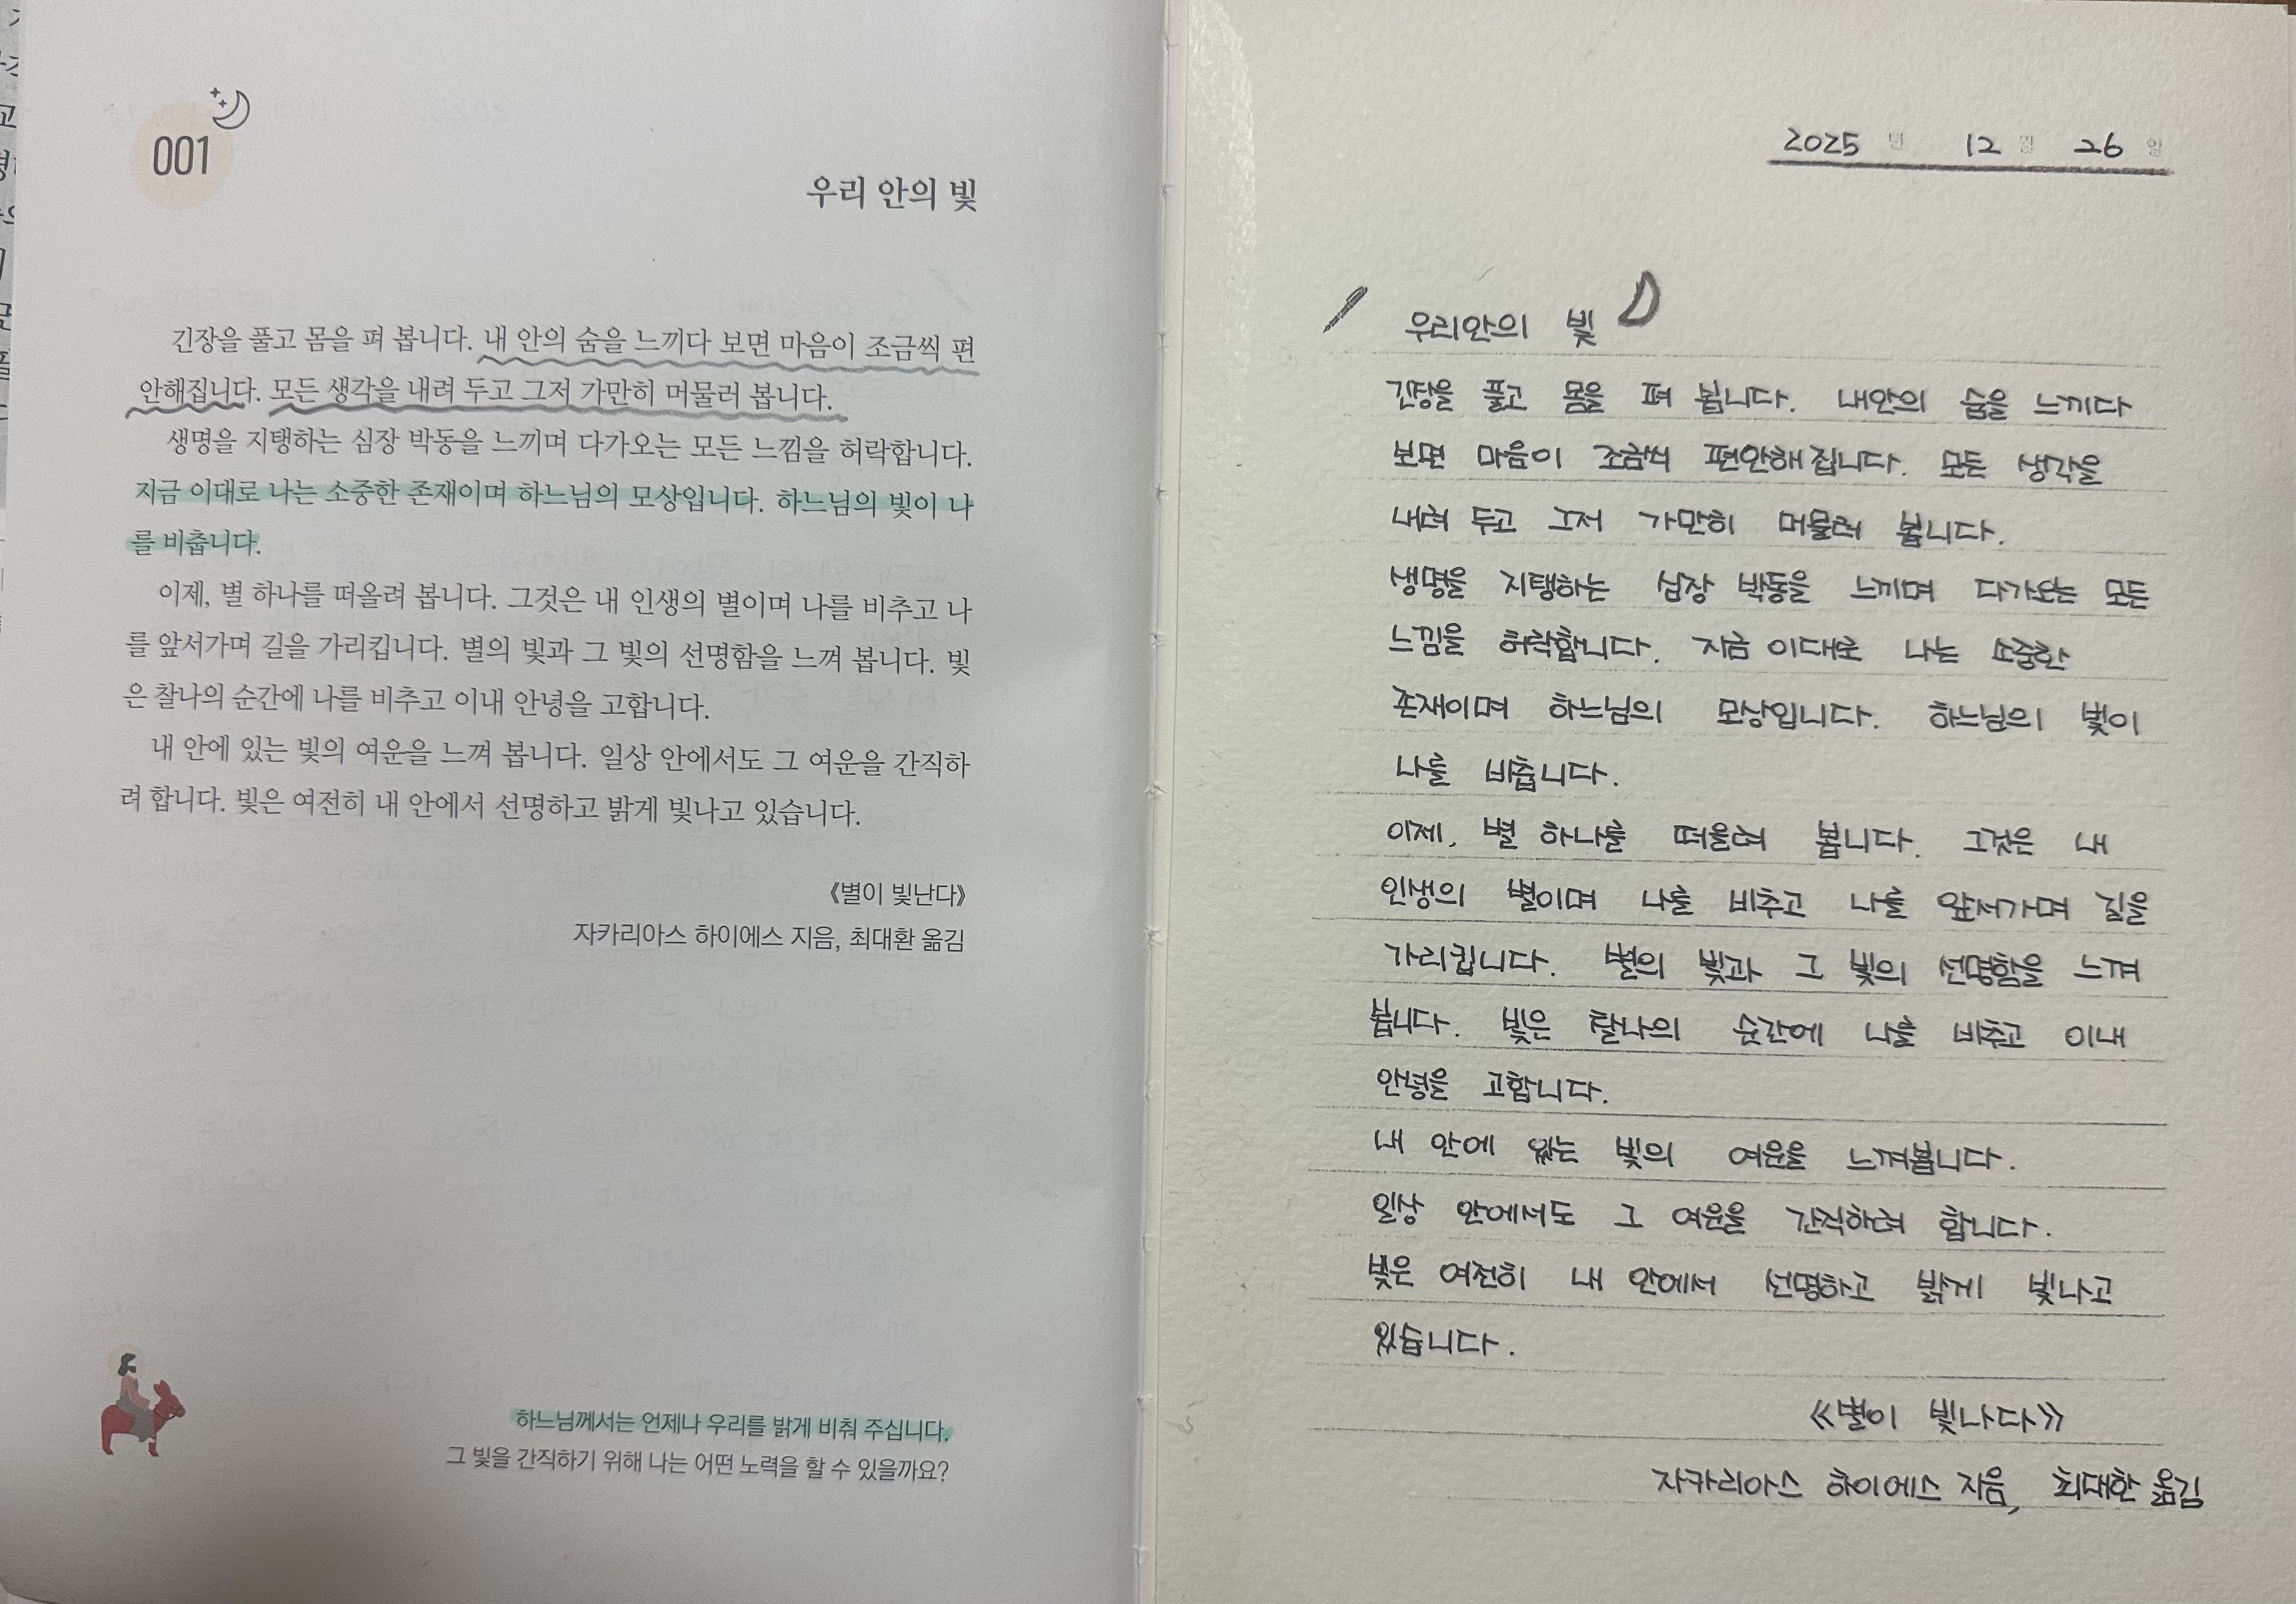 001
우리 안의 빛
긴장을 풀고 몸을 펴 봅니다. 내 안의 숨을 느끼다 보면 마음이 조금씩 편
안해집니다. 모든 생각을 내려 두고 그저 가만히 머물러 봅니다.
생명을 지탱하는 심장 박동을 느끼며 다가오는 모든 느낌을 허락합니다.
지금 이대로 나는 소중한 존재이며 하느님의 모상입니다. 하느님의 빛이 나
를 비춥니다.
이제, 별 하나를 떠올려 봅니다. 그것은 내 인생의 별이며 나를 비추고 나
를 앞서가며 길을 가리킵니다. 별의 빛과 그 빛의 선명함을 느껴 봅니다. 빛
은 찰나의 순간에 나를 비추고 이내 안녕을 고합니다.
내 안에 있는 빛의 여운을 느껴 봅니다. 일상 안에서도 그 여운을 간직하
려 합니다. 빛은 여전히 내 안에서 선명하고 밝게 빛나고 있습니다.
《별이 빛난다》
자카리아스 하이에스 지음, 최대환 옮김
하느님께서는 언제나 우리를 밝게 비춰 주십니다.
그 빛을 간직하기 위해 나는 어떤 노력을 할 수 있을까요?
2025 년 12 월 26 일
우리안의 빛
긴장을 풀고 몸을 펴 봅니다. 내안의 숨을 느끼다
보면 마음이 조금씩 편안해집니다. 모든 생각을
내려 두고 그저 가만히 머물러 봅니다.
생명을 지탱하는 심장 박동을 느끼며 다가오는 모든
느낌을 허락합니다. 지금 이대로 나는 소중한
존재이며 하느님의 모상입니다. 하느님의 빛이
나를 비춥니다.
이제, 별 하나를 떠올려 봅니다. 그것은 내
인생의 별이며 나를 비추고 나를 앞서가며 길을
가리킵니다. 별의 빛과 그 빛의 선명함을 느껴
봅니다. 빛은 찰나의 순간에 나를 비추고 이내
안녕을 고합니다.
내 안에 있는 빛의 여운을 느껴봅니다.
일상 안에서도 그 여운을 간직하려 합니다.
빛은 여전히 내 안에서 선명하고 밝게 빛나고
있습니다.
《별이 빛나다》
자카리아스 하이에스 지음, 최대환 옮김